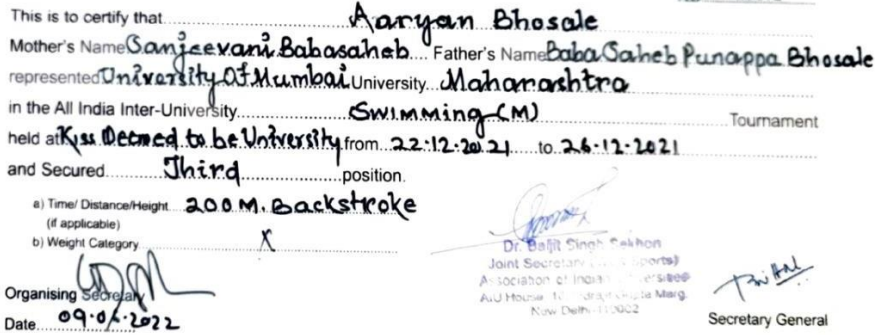 This is to certify that Aaryan Bhosale
Mother's Name Sanjeevani Babasaheb Father's Name Baba Saheb Punappa Bhosale
represented University Of Mumbai University Maharashtra
in the All India Inter-University Swimming (M) Tournament
held at Kiss Deemed to be University from 22-12-2021 to 26-12-2021
and Secured Third position.
a) Time/ Distance/Height 200 M. Backstroke
(if applicable)
b) Weight Category X
Dr. Baljit Singh Sekhon
Joint Secretary Sports)
Association of Indian
AIU House, 16 Marg,
New Delhi-110002
Organising Secretary
Date 2022
Secretary General